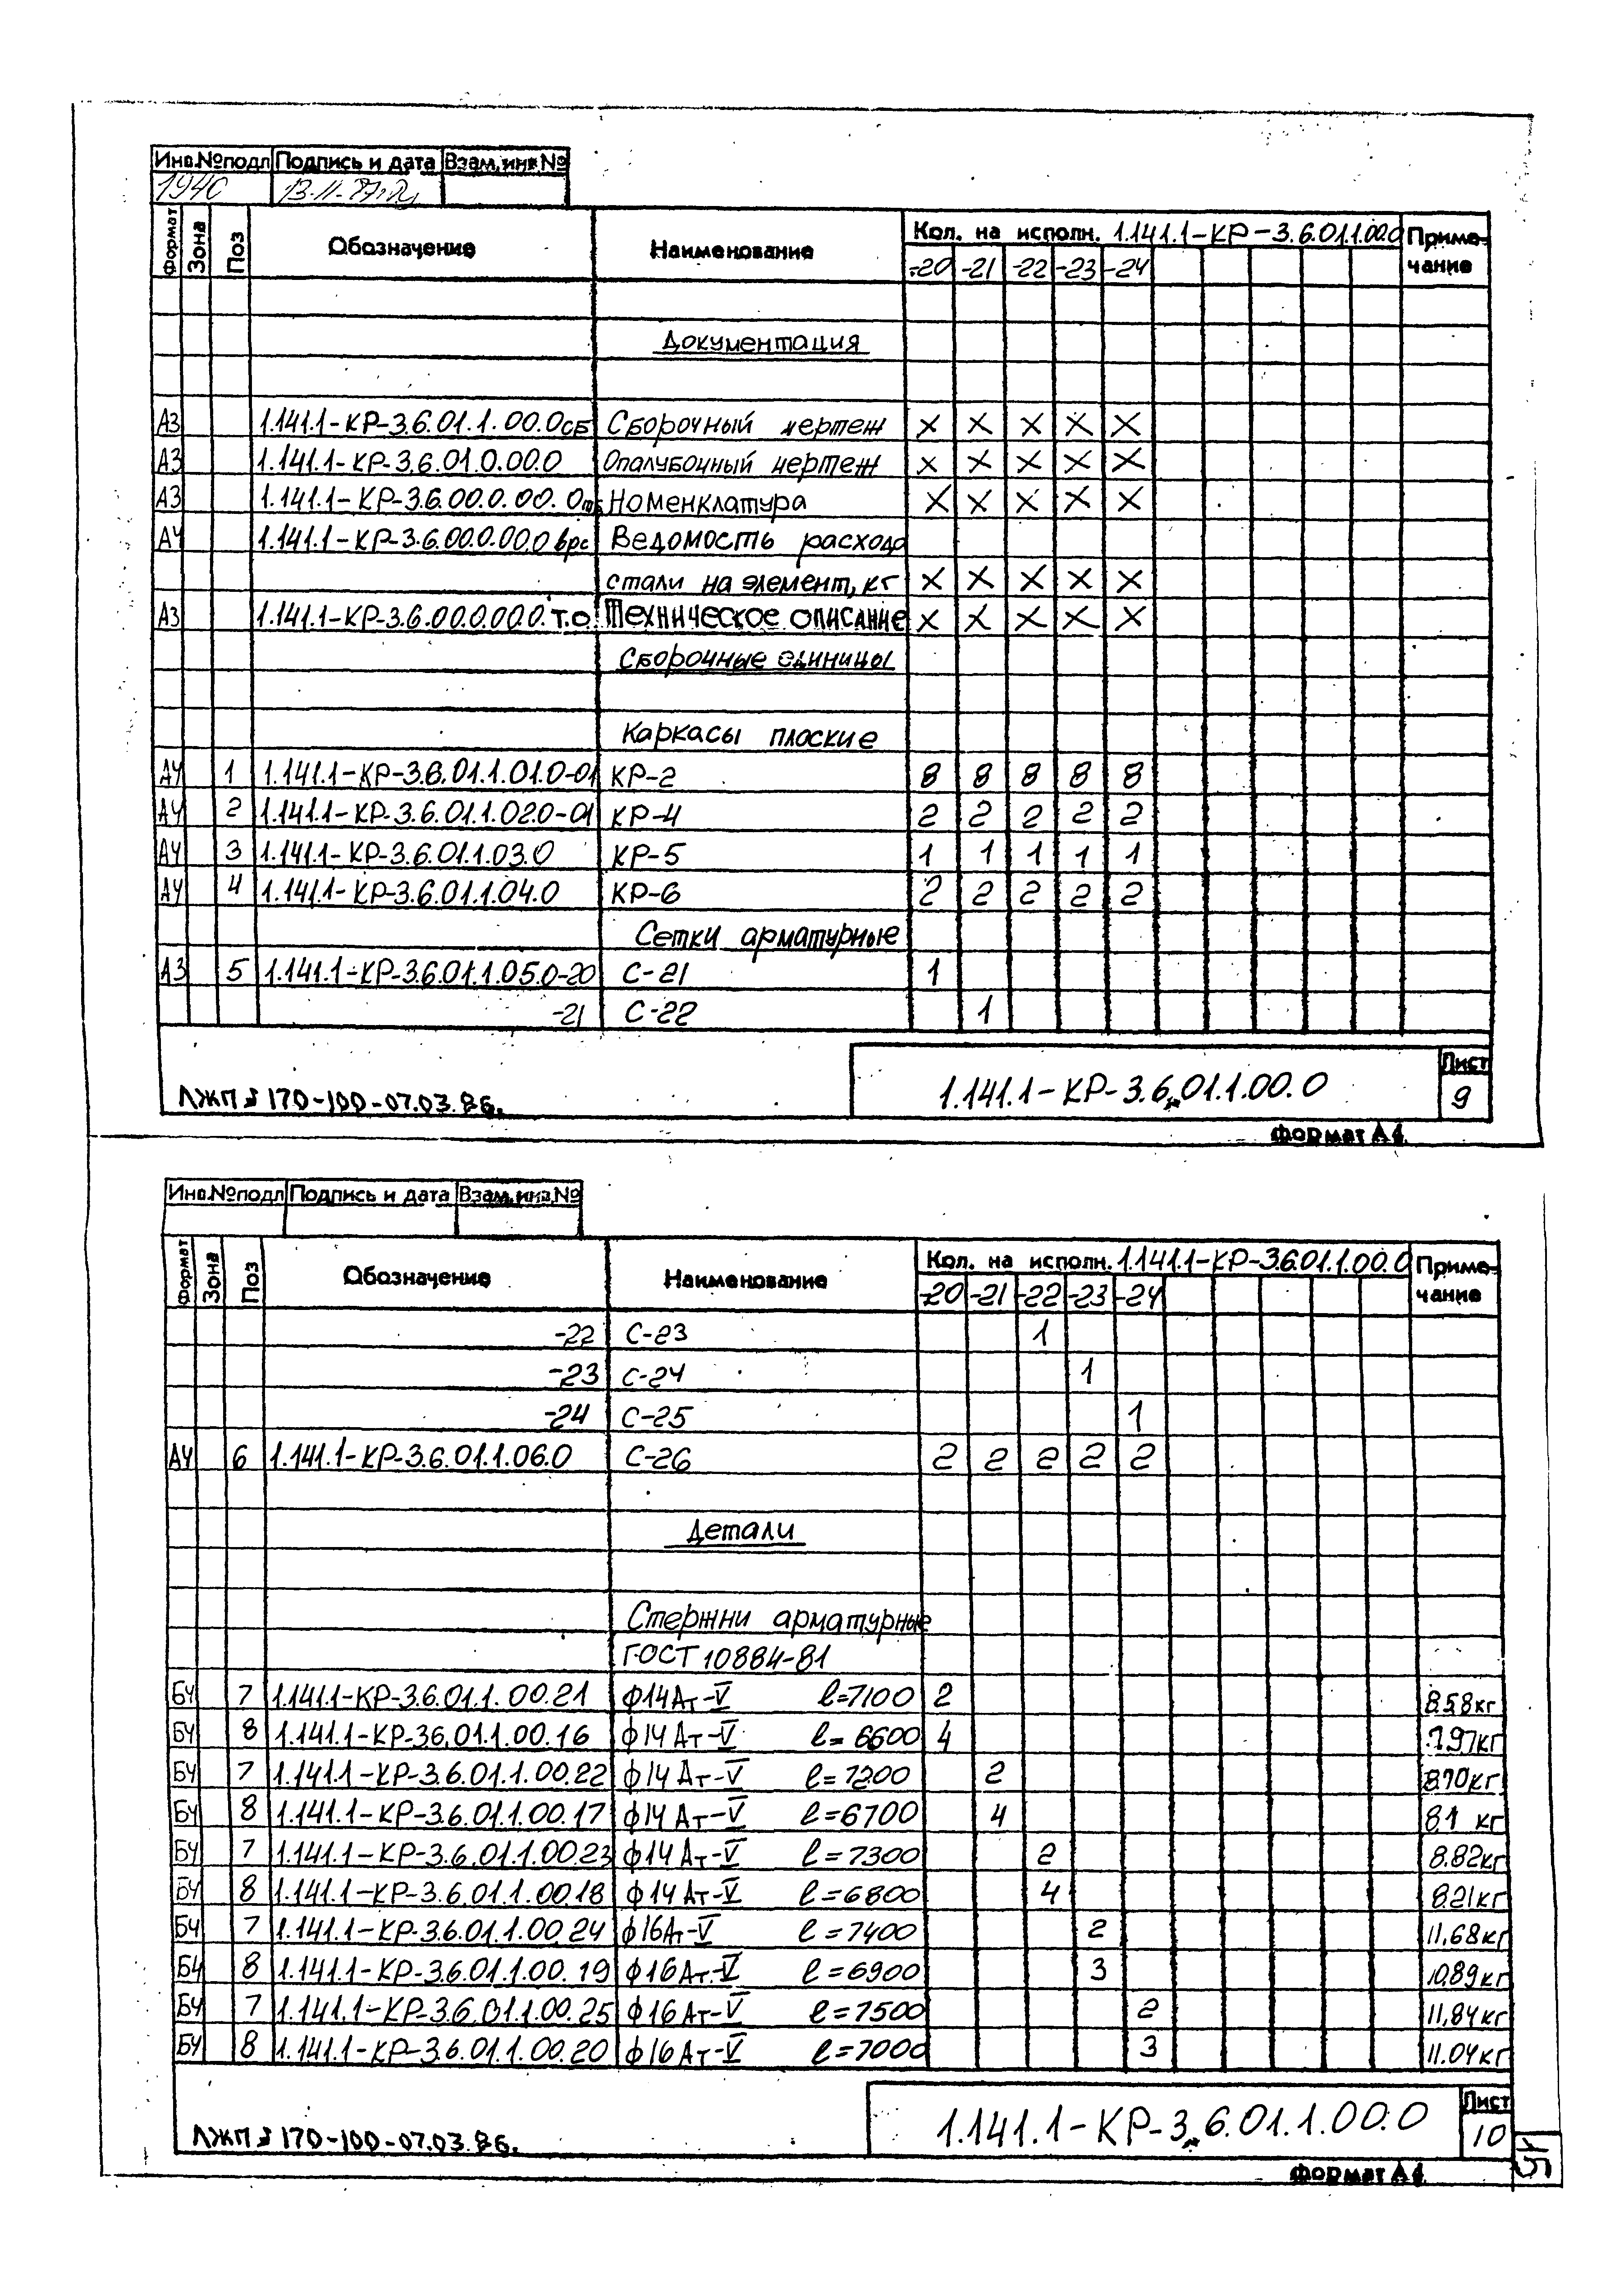 Инв.№подл Подпись и дата Взам.инв.№
1940 13.11.87г.
Формат Зона Поз Обозначение Наименование Кол. на исполн. 1.141.1-КР-3.6.01.1.00.0 Приме-
-20 -21 -22 -23 -24 чание
Документация
А3 1.141.1-КР-3.6.01.1.00.0сб Сборочный чертеж X X X X X
А3 1.141.1-КР-3.6.01.0.00.0 Опалубочный чертеж X X X X X
А3 1.141.1-КР-3.6.00.0.00.0 Номенклатура X X X X X
А4 1.141.1-КР-3.6.00.0.00.0врс Ведомость расхода
стали на элемент, кг X X X X X
А3 1.141.1-КР-3.6.00.0.00.0.Т.О Техническое описание X X X X X
Сборочные единицы
Каркасы плоские
А4 1 1.141.1-КР-3.6.01.1.01.0-01 КР-2 8 8 8 8 8
А4 2 1.141.1-КР-3.6.01.1.02.0-01 КР-4 2 2 2 2 2
А4 3 1.141.1-КР-3.6.01.1.03.0 КР-5 1 1 1 1 1
А4 4 1.141.1-КР-3.6.01.1.04.0 КР-6 2 2 2 2 2
Сетки арматурные
А3 5 1.141.1-КР-3.6.01.1.05.0-20 С-21 1
-21 С-22 1
ЛЖПЗ 170-100-07.03.86.
1.141.1-КР-3.6.01.1.00.0
Лист
9
Формат А4
Инв.№подл Подпись и дата Взам.инв.№
Формат Зона Поз Обозначение Наименование Кол. на исполн. 1.141.1-КР-3.6.01.1.00.0 Приме-
-20 -21 -22 -23 -24 чание
-22 С-23 1
-23 С-24 1
-24 С-25 1
А4 6 1.141.1-КР-3.6.01.1.06.0 С-26 2 2 2 2 2
Детали
Стержни арматурные
ГОСТ 10884-81
БЧ 7 1.141.1-КР-3.6.01.1.00.21 ф14Ат-V ℓ=7100 2 8.58кг
БЧ 8 1.141.1-КР-3.6.01.1.00.16 ф14Ат-V ℓ=6600 4 7.97кг
БЧ 7 1.141.1-КР-3.6.01.1.00.22 ф14Ат-V ℓ=7200 2 8.70кг
БЧ 8 1.141.1-КР-3.6.01.1.00.17 ф14Ат-V ℓ=6700 4 8.1 кг
БЧ 7 1.141.1-КР-3.6.01.1.00.23 ф14Ат-V ℓ=7300 2 8.82кг
БЧ 8 1.141.1-КР-3.6.01.1.00.18 ф14Ат-V ℓ=6800 4 8.21кг
БЧ 7 1.141.1-КР-3.6.01.1.00.24 ф16Ат-V ℓ=7400 2 11,68кг
БЧ 8 1.141.1-КР-3.6.01.1.00.19 ф16Ат-V ℓ=6900 3 10.89кг
БЧ 7 1.141.1-КР-3.6.01.1.00.25 ф16Ат-V ℓ=7500 2 11,84кг
БЧ 8 1.141.1-КР-3.6.01.1.00.20 ф16Ат-V ℓ=7000 3 11.04кг
ЛЖПЗ 170-100-07.03.86.
1.141.1-КР-3.6.01.1.00.0
Лист
10
Формат А4
15